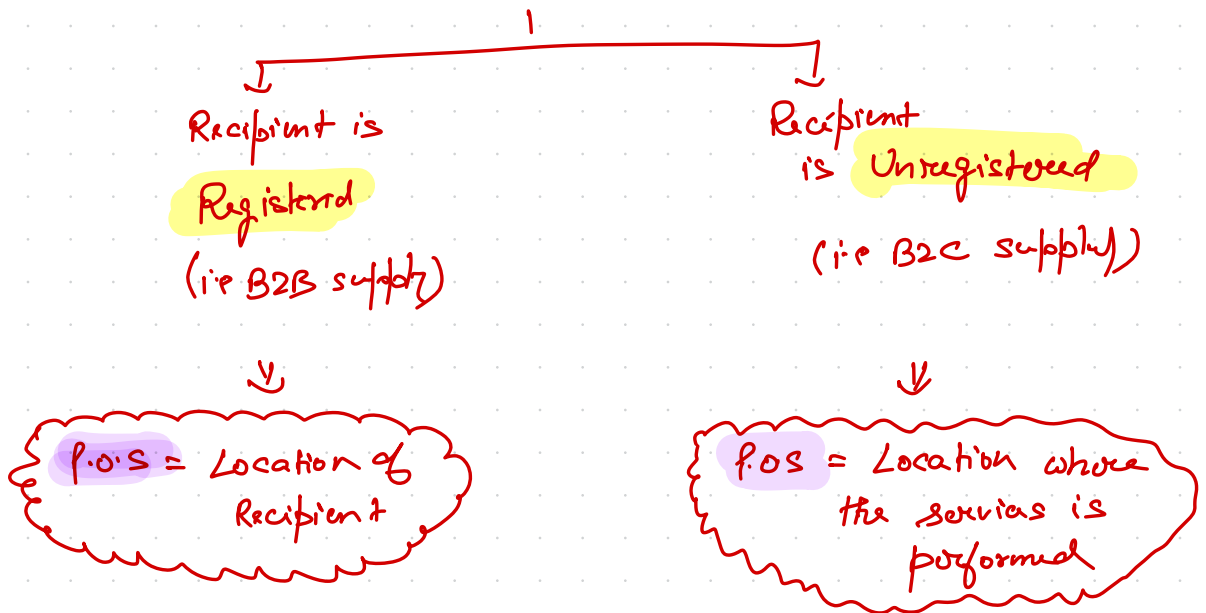 Recipient is
Registered
(i.e B2B supply)
P.O.S = Location of
Recipient
Recipient
is Unregistered
(i.e B2C supply)
P.OS = Location where
the services is
performed